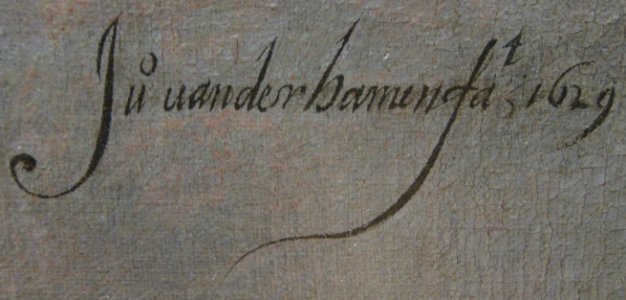 Juº vander hamen fat 1629